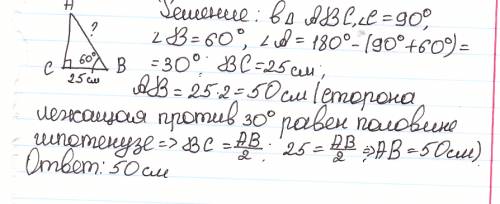 A
?
C 60° B
25 см
Решение: в △ ABC, ∠C = 90°,
∠B = 60°, ∠A = 180° - (90° + 60°) =
= 30°; BC = 25 см;
AB = 25·2 = 50 см (сторона
лежащая против 30° равен половине
гипотенузе => BC = AB/2; 25 = AB/2 => AB = 50 см)
Ответ: 50 см